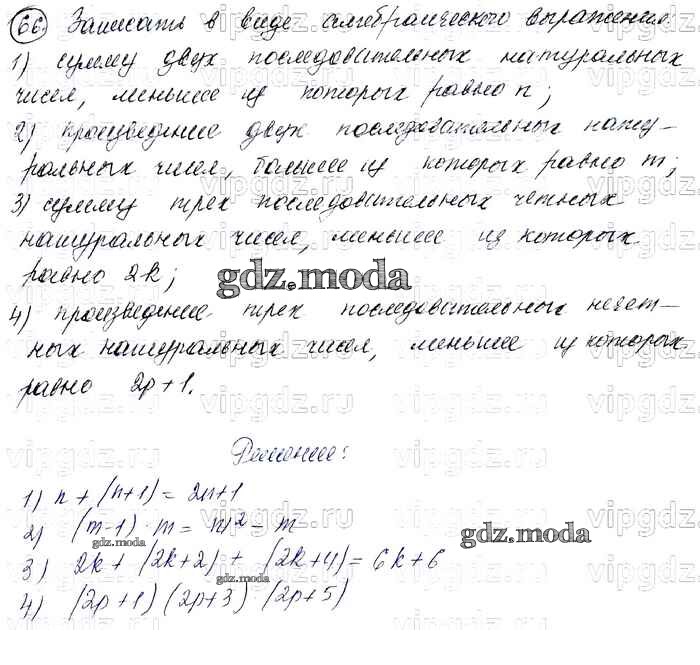 66. Записать в виде алгебраического выражения:
1) сумму двух последовательных натуральных
чисел, меньшее из которых равно n;
2) произведение двух последовательных нату-
ральных чисел, большее из которых равно m;
3) сумму трех последовательных четных
натуральных чисел, меньшее из которых
равно 2k;
gdz.moda
4) произведение трех последовательных нечет-
ных натуральных чисел, меньшее из которых
равно 2p+1.
vipgdz.ru
Решение:
1) n + (n+1) = 2n+1
2) (m-1) · m = m² - m
gdz.moda
gdz.moda
3) 2k + (2k+2) + (2k+4) = 6k+6
4) (2p+1)(2p+3)·(2p+5)
gdz.moda